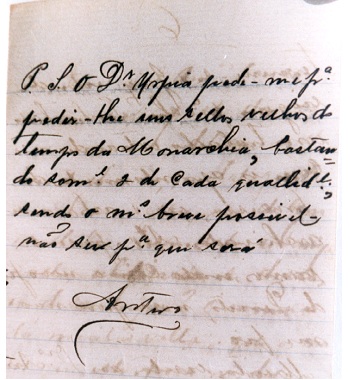 P. S. O Dr. Urpia pede-me pª
pedir-lhe uns sellos velhos do
tempo da Monarchia, bastan-
do somte 2 de cada qualidde,
sendo o mº breve possivel-
não sei pª que será
Antero